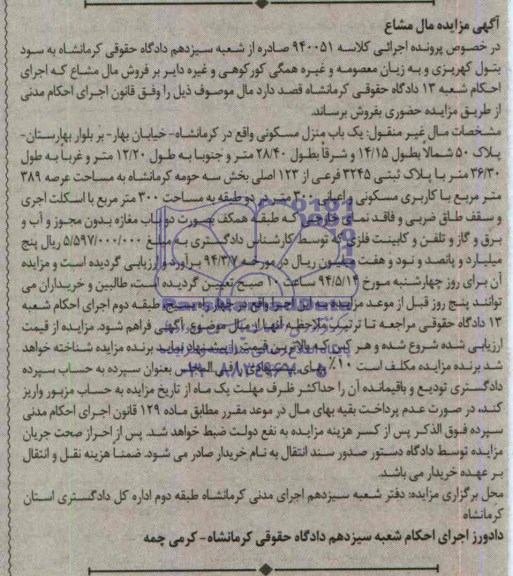 آگهی مزایده مال مشاع
در خصوص پرونده اجرائی کلاسه ۹۴۰۰۵۱ صادره از شعبه سیزدهم دادگاه حقوقی کرمانشاه به سود
بتول کهریزی و به زیان معصومه و غیره همگی کورکوهی و غیره دایر بر فروش مال مشاع که اجرای
احکام شعبه ۱۳ دادگاه حقوقی کرمانشاه قصد دارد مال موصوف ذیل را وفق قانون اجرای احکام مدنی
از طریق مزایده حضوری بفروش برساند.
مشخصات مال غیر منقول: یک باب منزل مسکونی واقع در کرمانشاه- خیابان بهار- بر بلوار بهارستان-
پلاک ۵۰ شمالاً بطول ۱۴/۱۵ و شرقاً بطول ۲۸/۴۰ متر و جنوبا به طول ۱۲/۲۰ متر و غربا به طول
۳۶/۳۰ متر با پلاک ثبتی ۳۲۴۵ فرعی از ۱۲۳ اصلی بخش سه حومه کرمانشاه به مساحت عرصه ۳۸۹
متر مربع با کاربری مسکونی و اعیانی ۳۰۰ متر در دو طبقه به مساحت ۳۰۰ متر مربع با اسکلت اجری
و سقف طاق ضربی و فاقد نمای خارجی که طبقه همکف بصورت دو باب مغازه بدون مجوز و آب و
برق و گاز و تلفن و کابینت فلزی که توسط کارشناس دادگستری به مبلغ ۵/۵۹۷/۰۰۰/۰۰۰ ریال پنج
میلیارد و پانصد و نود و هفت میلیون ریال در مورخه ۹۴/۳/۷ برآورد و ارزیابی گردیده است و مزایده
آن برای روز چهارشنبه مورخ ۹۴/۵/۱۴ ساعت ۱۰ صبح تعیین گردیده است، طالبین و خریداران می
توانند پنج روز قبل از موعد مزایده به این اجرا واقع در چهارراه بسیج، طبقه دوم اجرای احکام شعبه
۱۳ دادگاه حقوقی مراجعه تا ترتیب ملاحظه آنها از مال موضوع آگهی فراهم شود. مزایده از قیمت
ارزیابی شده شروع شده و هر کس که بالاترین قیمت را پیشنهاد نماید برنده مزایده شناخته خواهد
شد برنده مزایده مکلف است ۱۰٪ بهای پیشنهادی را فی المجلس بعنوان سپرده به حساب سپرده
دادگستری تودیع و باقیمانده آن را حداکثر ظرف مهلت یک ماه از تاریخ مزایده به حساب مزبور واریز
کند، در صورت عدم پرداخت بقیه بهای مال در موعد مقرر مطابق ماده ۱۲۹ قانون اجرای احکام مدنی
سپرده فوق الذکر پس از کسر هزینه مزایده به نفع دولت ضبط خواهد شد. پس از احراز صحت جریان
مزایده توسط دادگاه دستور صدور سند انتقال به نام خریدار صادر می شود. ضمنا هزینه نقل و انتقال
بر عهده خریدار می باشد.
محل برگزاری مزایده: دفتر شعبه سیزدهم اجرای مدنی کرمانشاه طبقه دوم اداره کل دادگستری استان
کرمانشاه
دادورز اجرای احکام شعبه سیزدهم دادگاه حقوقی کرمانشاه- کرمی چمه